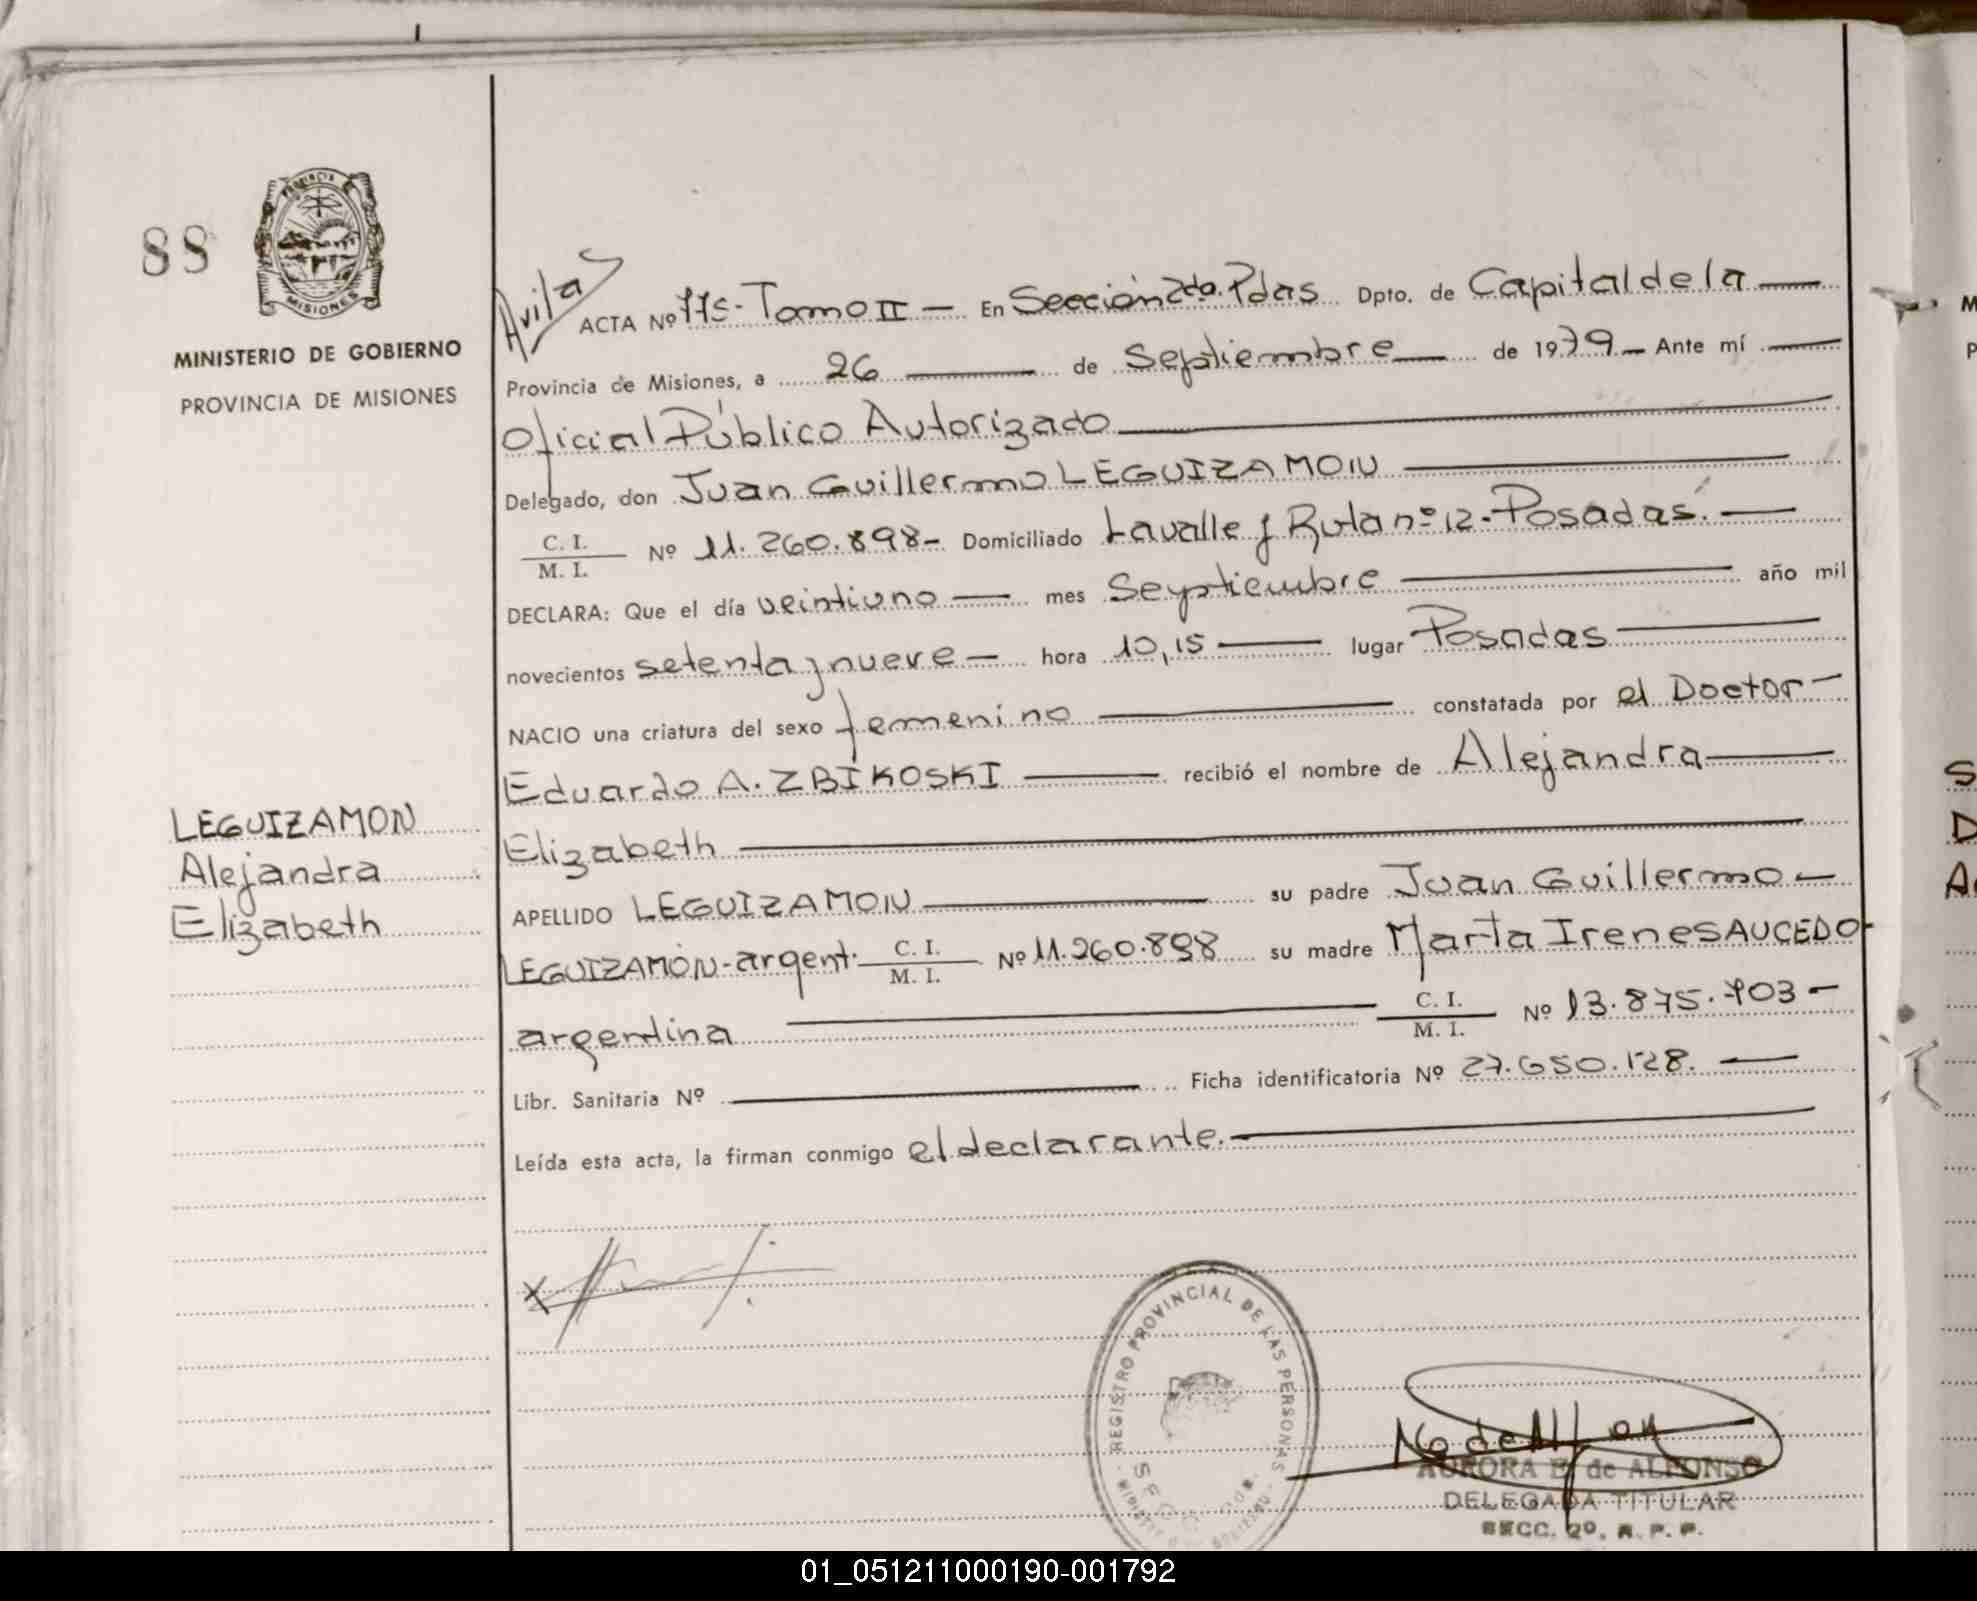 88
PROVINCIA DE
MISIONES
MINISTERIO DE GOBIERNO
PROVINCIA DE MISIONES
LEGUIZAMON
Alejandra
Elizabeth
Avila
ACTA Nº 775- Tomo II — En Sección 2da. Pdas Dpto. de Capital de la —
Provincia de Misiones, a 26 — de Septiembre — de 1979 — Ante mí —
Oficial Público Autorizado —
Delegado, don Juan Guillermo LEGUIZAMON —
C. I.
M. I. Nº 11.260.898- Domiciliado Lavalle y Ruta nº 12-Posadas. —
DECLARA: Que el día veintiuno — mes Septiembre — año mil
novecientos setenta y nueve — hora 10,15 — lugar Posadas —
NACIO una criatura del sexo femenino — constatada por el Doctor —
Eduardo A. ZBIKOSKI — recibió el nombre de Alejandra —
Elizabeth —
APELLIDO LEGUIZAMON — su padre Juan Guillermo —
LEGUIZAMON-argent. C. I. M. I. Nº 11.260.898 su madre Marta Irene SAUCEDO-
argentina — C. I. M. I. Nº 13.875.703 —
Libr. Sanitaria Nº — Ficha identificatoria Nº 27.650.128. —
Leída esta acta, la firman conmigo el declarante. —
X
REGISTRO PROVINCIAL DE LAS PERSONAS
AURORA B. de ALFONSO
DELEGADA TITULAR
SECC. 2º. R. P. P.
01_051211000190-001792